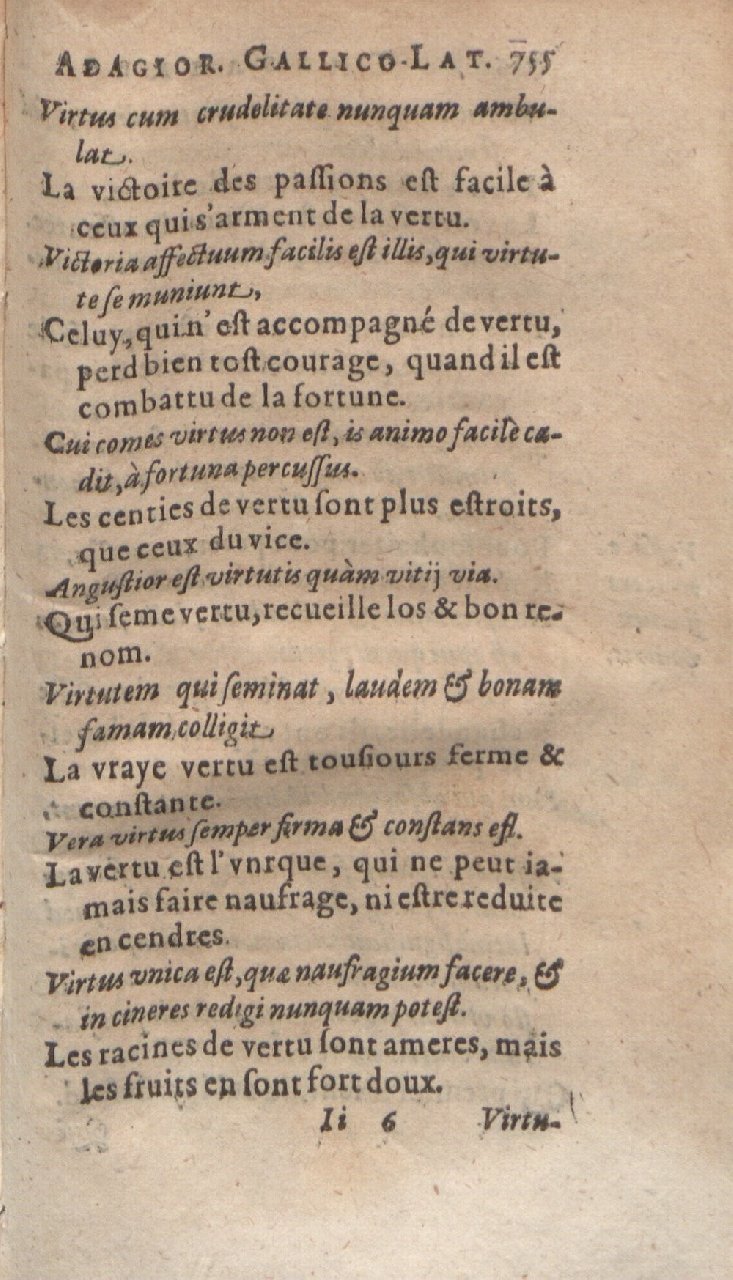 ADAGIOR. GALLICO-LAT. 755
Virtus cum crudelitate nunquam ambu-
lat.
La victoire des paſſions eſt facile à
ceux qui s'arment de la vertu.
Victoria affectuum facilis eſt illis, qui virtu-
te ſe muniunt,
Celuy, qui n'eſt accompagné de vertu,
perd bien toſt courage, quand il eſt
combattu de la fortune.
Cui comes virtus non eſt, is animo facilè ca-
dit, à fortuna percuſſus.
Les centies de vertu ſont plus eſtroits,
que ceux du vice.
Anguſtior eſt virtutis quàm vitij via.
Qui ſeme vertu, recueille los & bon re-
nom.
Virtutem qui ſeminat, laudem & bonam
famam colligit
La vraye vertu eſt touſiours ferme &
conſtante.
Vera virtus ſemper firma & conſtans eſt.
La vertu eſt l'vnrque, qui ne peut ia-
mais faire naufrage, ni eſtre reduite
en cendres.
Virtus vnica eſt, quæ naufragium facere, &
in cineres redigi nunquam poteſt.
Les racines de vertu ſont ameres, mais
les fruits en ſont fort doux.
Ii 6 Virtu-